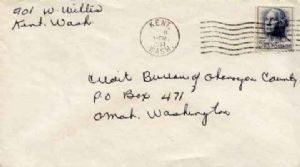 901 W. Willis
Kent. Wash
KENT,
WASH.
Credit Bureau of Okanogan County
PO Box 471
Omak, Washington